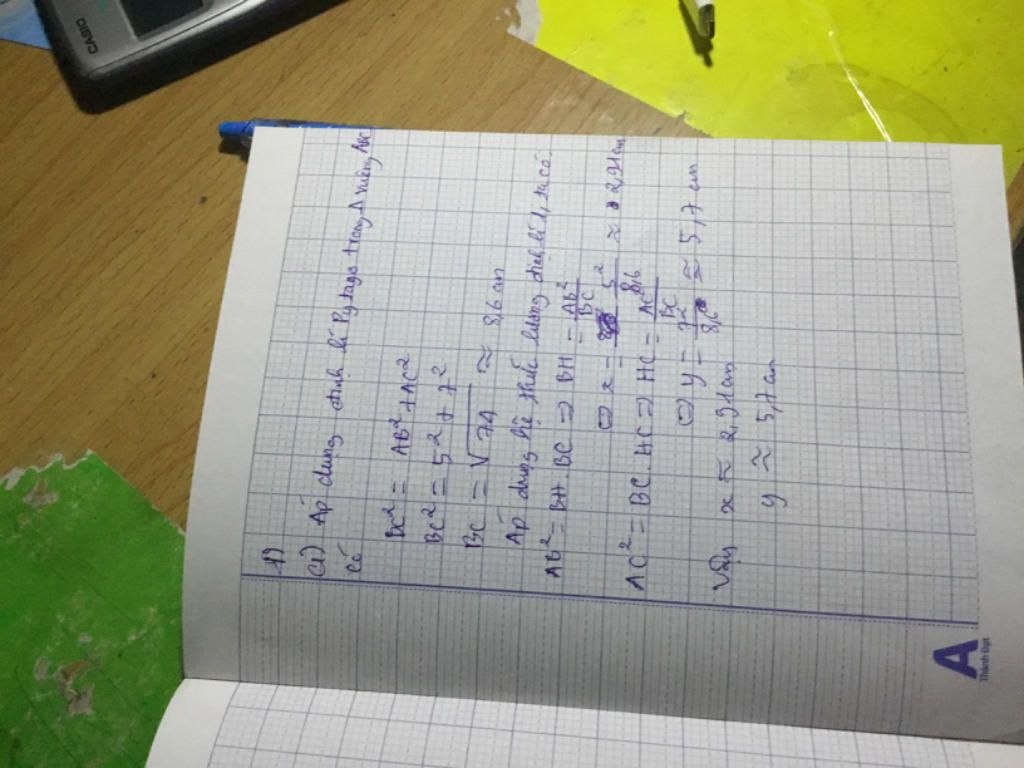 CASIO
1)
a) Áp dụng định lí Pytago trong Δ vuông ABC
có
BC² = AB² + AC²
BC² = 5² + 7²
BC = √74 ≈ 8,6 cm
Áp dụng hệ thức lượng định lí 1, ta có.
AB² = BH . BC ⇒ BH = AB²/BC
⇔ x = 5²/8,6 ≈ 2,91 cm
AC² = BC . HC ⇒ HC = AC²/BC
⇔ y = 7²/8,6 ≈ 5,7 cm
Vậy x ≈ 2,91 cm
y ≈ 5,7 cm
A
Thành Đạt